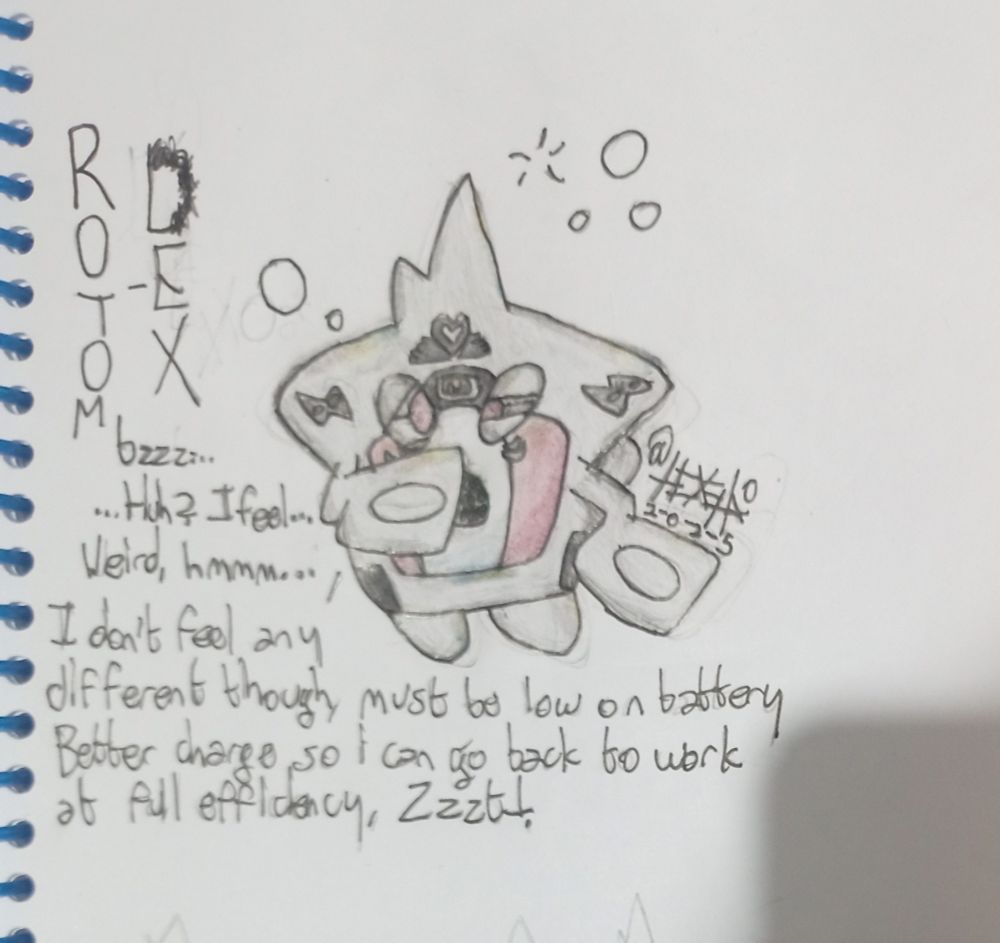 ROTOM
-DEX
bzzz...
...Huh? I feel...
Weird, hmmm...,
I don't feel any
different though, must be low on battery
Better charge so i can go back to work
at full efficiency, Zzzt!
2-0-2-5